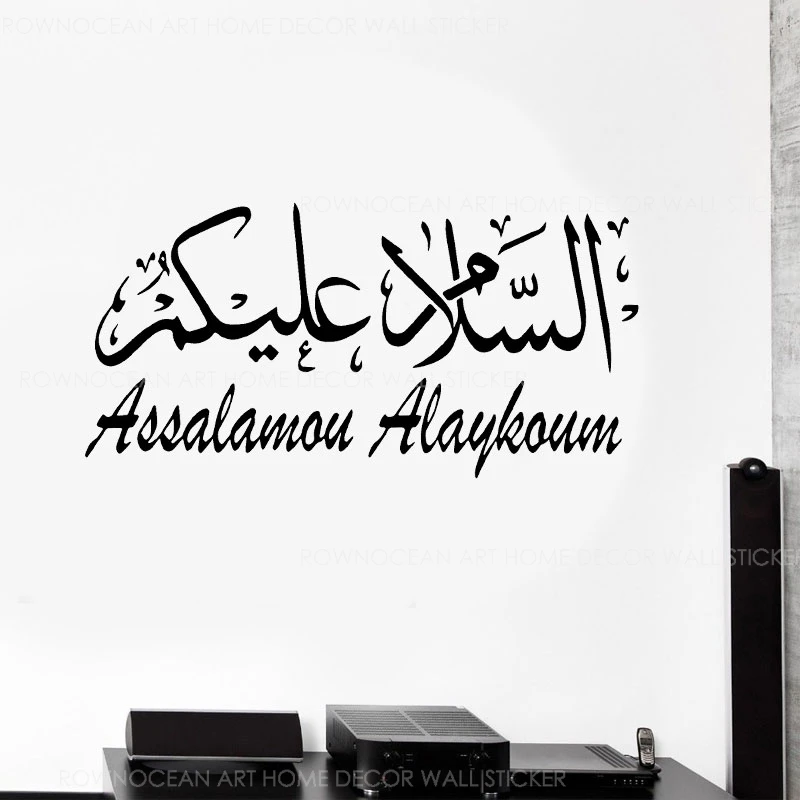 ROWNOCEAN ART HOME DECOR WALL STICKER
ROWNOCEAN ART HOME DECOR WALL STICKER
السَّلام عليكمُ
ROWNOCEAN ART HOME DECOR WALL STICKER
Assalamou Alaykoum
ROWNOCEAN ART HOME DECOR WALL STICKER
ROWNOCEAN ART HOME DECOR WALL STICKER